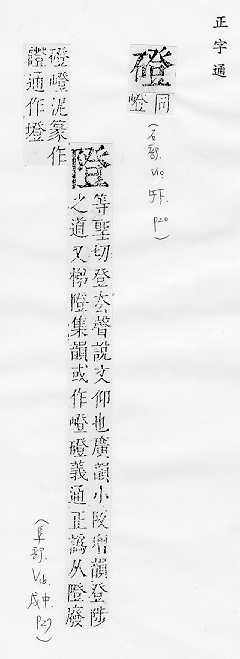 正字通
磴
同
嶝
(石部. V10, 午下. P20)
隥
等聖切登去聲說文仰也廣韻小阪增韻登陟
之道又梯隥集韻或作嶝磴義通正譌从隥廢
(阜部. V16. 戌中. P27)
磴嶝泥篆作
隥通作墱